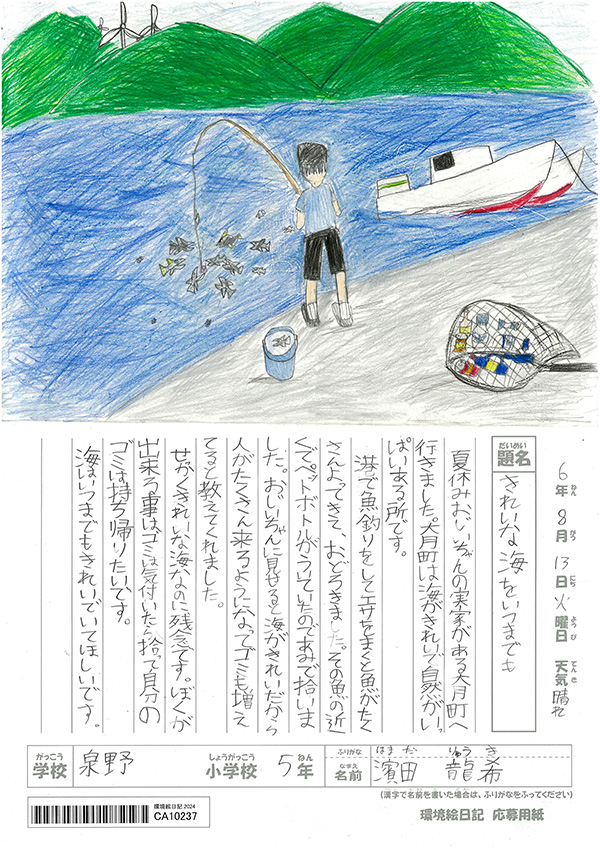 6年 8月 13日 火曜日 天気 晴れ
ねん がつ にち ようび てんき
だいめい
題名 きれいな海をいつまでも
夏休みおじいちゃんの実家がある大月町へ
行きました。大月町は海がきれいで自然がいっ
ぱいある所です。
港で魚釣りをしてエサをまくと魚がたく
さんよってきて、おどろきました。その魚の近
くでペットボトルがういていたのであみで拾いま
した。おじいちゃんに見せると海がきれいだから
人がたくさん来るようになってゴミも増え
てると教えてくれました。
せっかくきれいな海なのに残念です。ぼくが
出来る事はゴミは気付いたら拾って自分の
ゴミは持ち帰りたいです。
海はいつまでもきれいでいてほしいです。
がっこう しょうがっこう ねん
学校 泉野 小学校 5年
ふりがな はまだ りゅうき
なまえ
名前 濱田 龍希
(漢字で名前を書いた場合は、ふりがなをふってください)
環境絵日記 2024
CA10237
環境絵日記 応募用紙